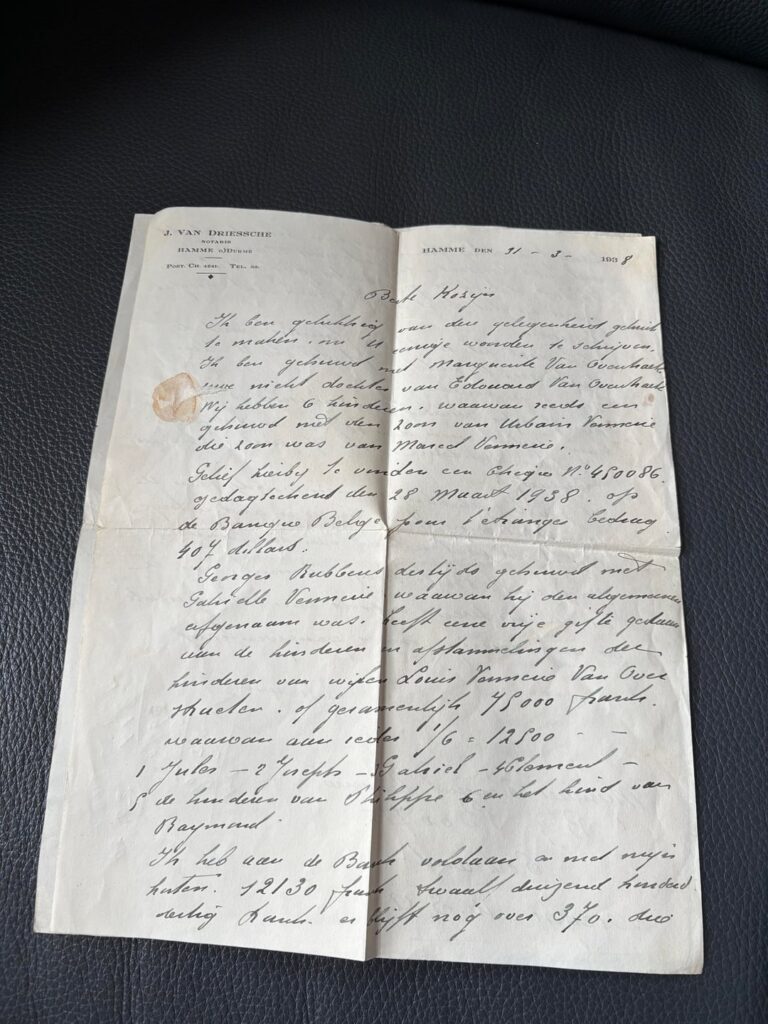 J. VAN DRIESSCHE
NOTARIS
HAMME o/DURME
POST. CH. TEL.
HAMME DEN 31 - 3 - 1938
Beste Kozijn
Ik ben gelukkig van den gelegenheid gebruik
te maken, om U eenige woorden te schrijven.
Ik ben gehuwd met Marguerite Van Overstraeten
uwe nicht dochter van Edouard Van Overstraeten
Wij hebben 6 kinderen, waarvan reeds een
gehuwd met den zoon van Urbain Vermeire
die zoon was van Marcel Vermeire.
Gelief hierbij te vinden een Cheque No 450086.
gedagteekend den 28 Maart 1938. op
de Banque Belge pour l'etranger bedrag
407 dollars.
Georges Rubbens destijds gehuwd met
Gabrielle Vermeire waarvan hij den algemeenen
erfgenaam was. heeft eene vrije gifte gedaan
aan de kinderen en afstammelingen der
kinderen van wijlen Louis Vermeire Van Over
straeten. of gezamenlijk 75000 frank.
waarvan aan ieder 1/6 = 12500 - -
1 Jules - 2 Joseph - 3 Gabriel - 4 Clement -
5 de kinderen van Philippe 6 en het kind van
Raymond.
Ik heb aan de Bank voldaan en met mijn
kosten. 12130 frank twaalf duizend honderd
dertig frank. er blijft nog over 370. die